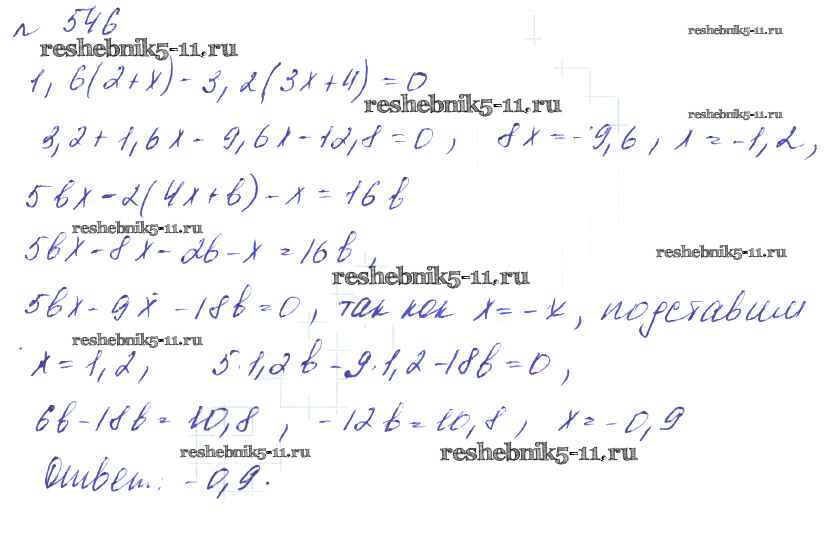 № 546
reshebnik5-11.ru
reshebnik5-11.ru
1,6(2+x)-3,2(3x+4)=0
reshebnik5-11.ru
reshebnik5-11.ru
3,2+1,6x-9,6x-12,8=0, 8x=-9,6, x=-1,2,
5bx-2(4x+b)-x=16b
reshebnik5-11.ru
5bx-8x-2b-x=16b,
reshebnik5-11.ru
reshebnik5-11.ru
5bx-9x-18b=0, так как x=-x, подставим
reshebnik5-11.ru
x=1,2, 5·1,2b-9·1,2-18b=0,
6b-18b=10,8, -12b=10,8, x=-0,9
reshebnik5-11.ru
reshebnik5-11.ru
Ответ: -0,9.